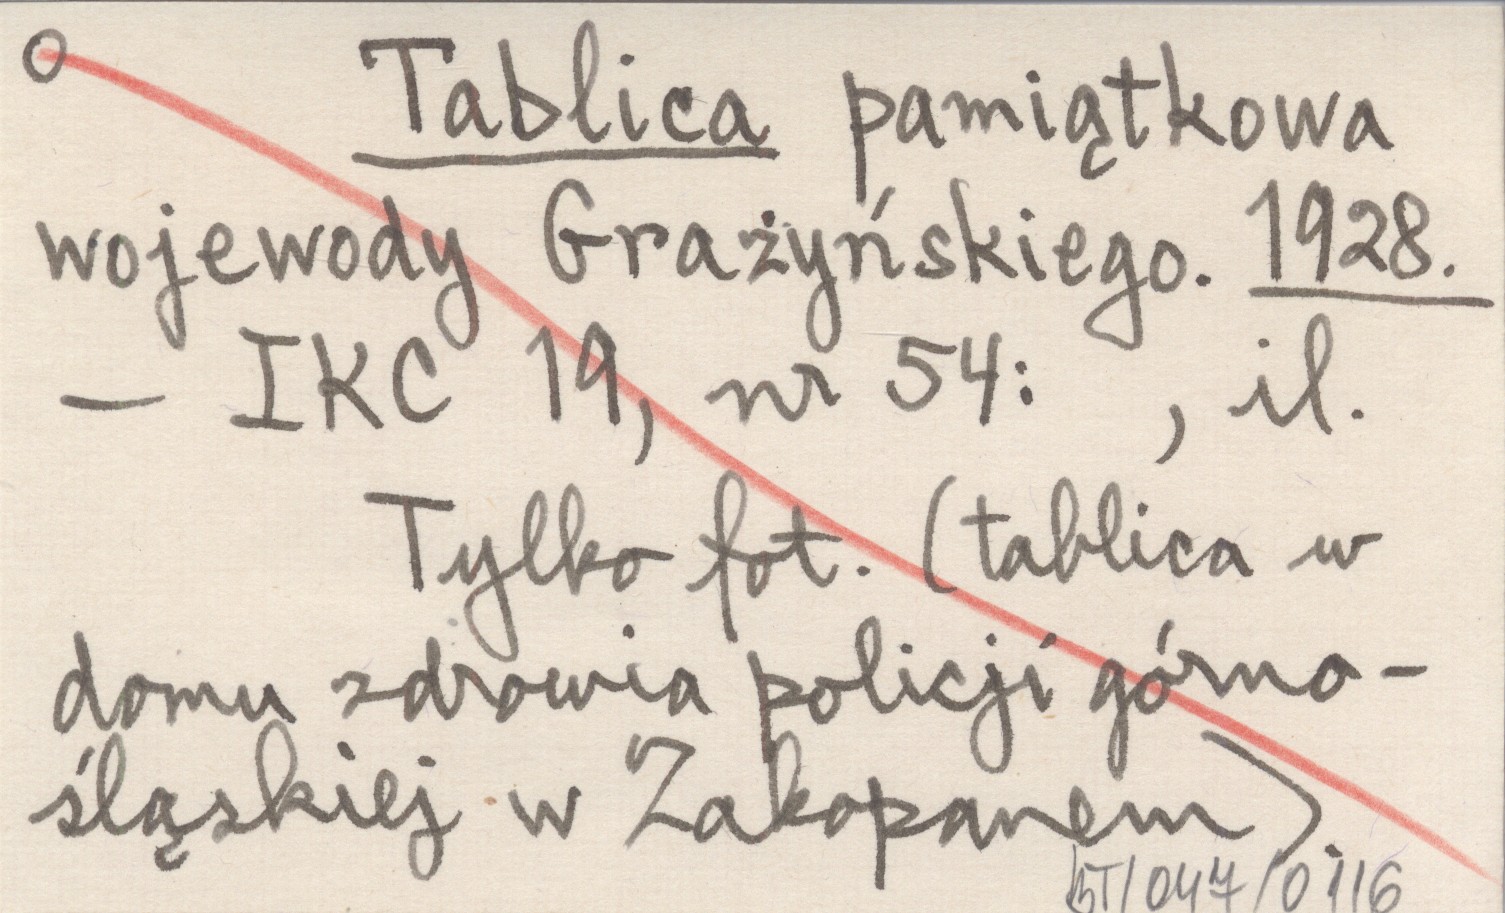 O Tablica pamiątkowa
wojewody Grażyńskiego. 1928.
— IKC 19, nr 54: , il.
Tylko fot. (tablica w
domu zdrowia policji górno-
śląskiej w Zakopanem).
/047/0116